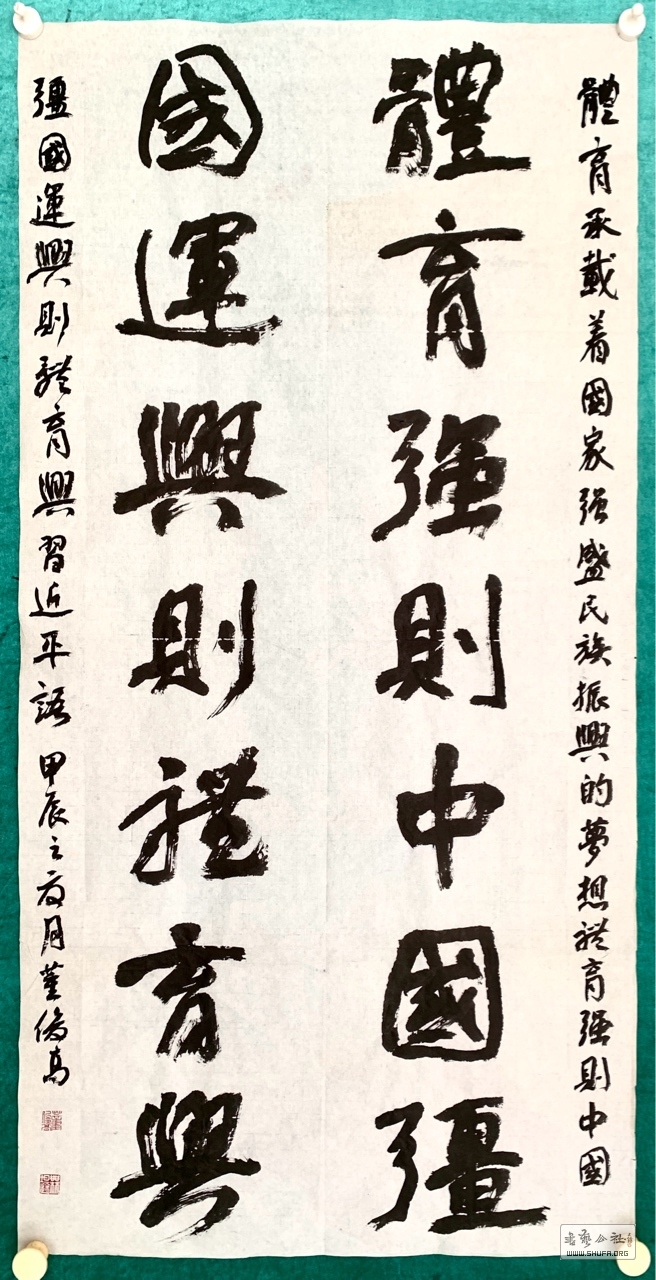 體育承載着國家强盛民族振興的夢想體育强則中國
體育强則中國彊
國運興則體育興
彊國運興則體育興習近平語 甲辰之夏月董高
書藝公社
WWW.SHUFA.ORG